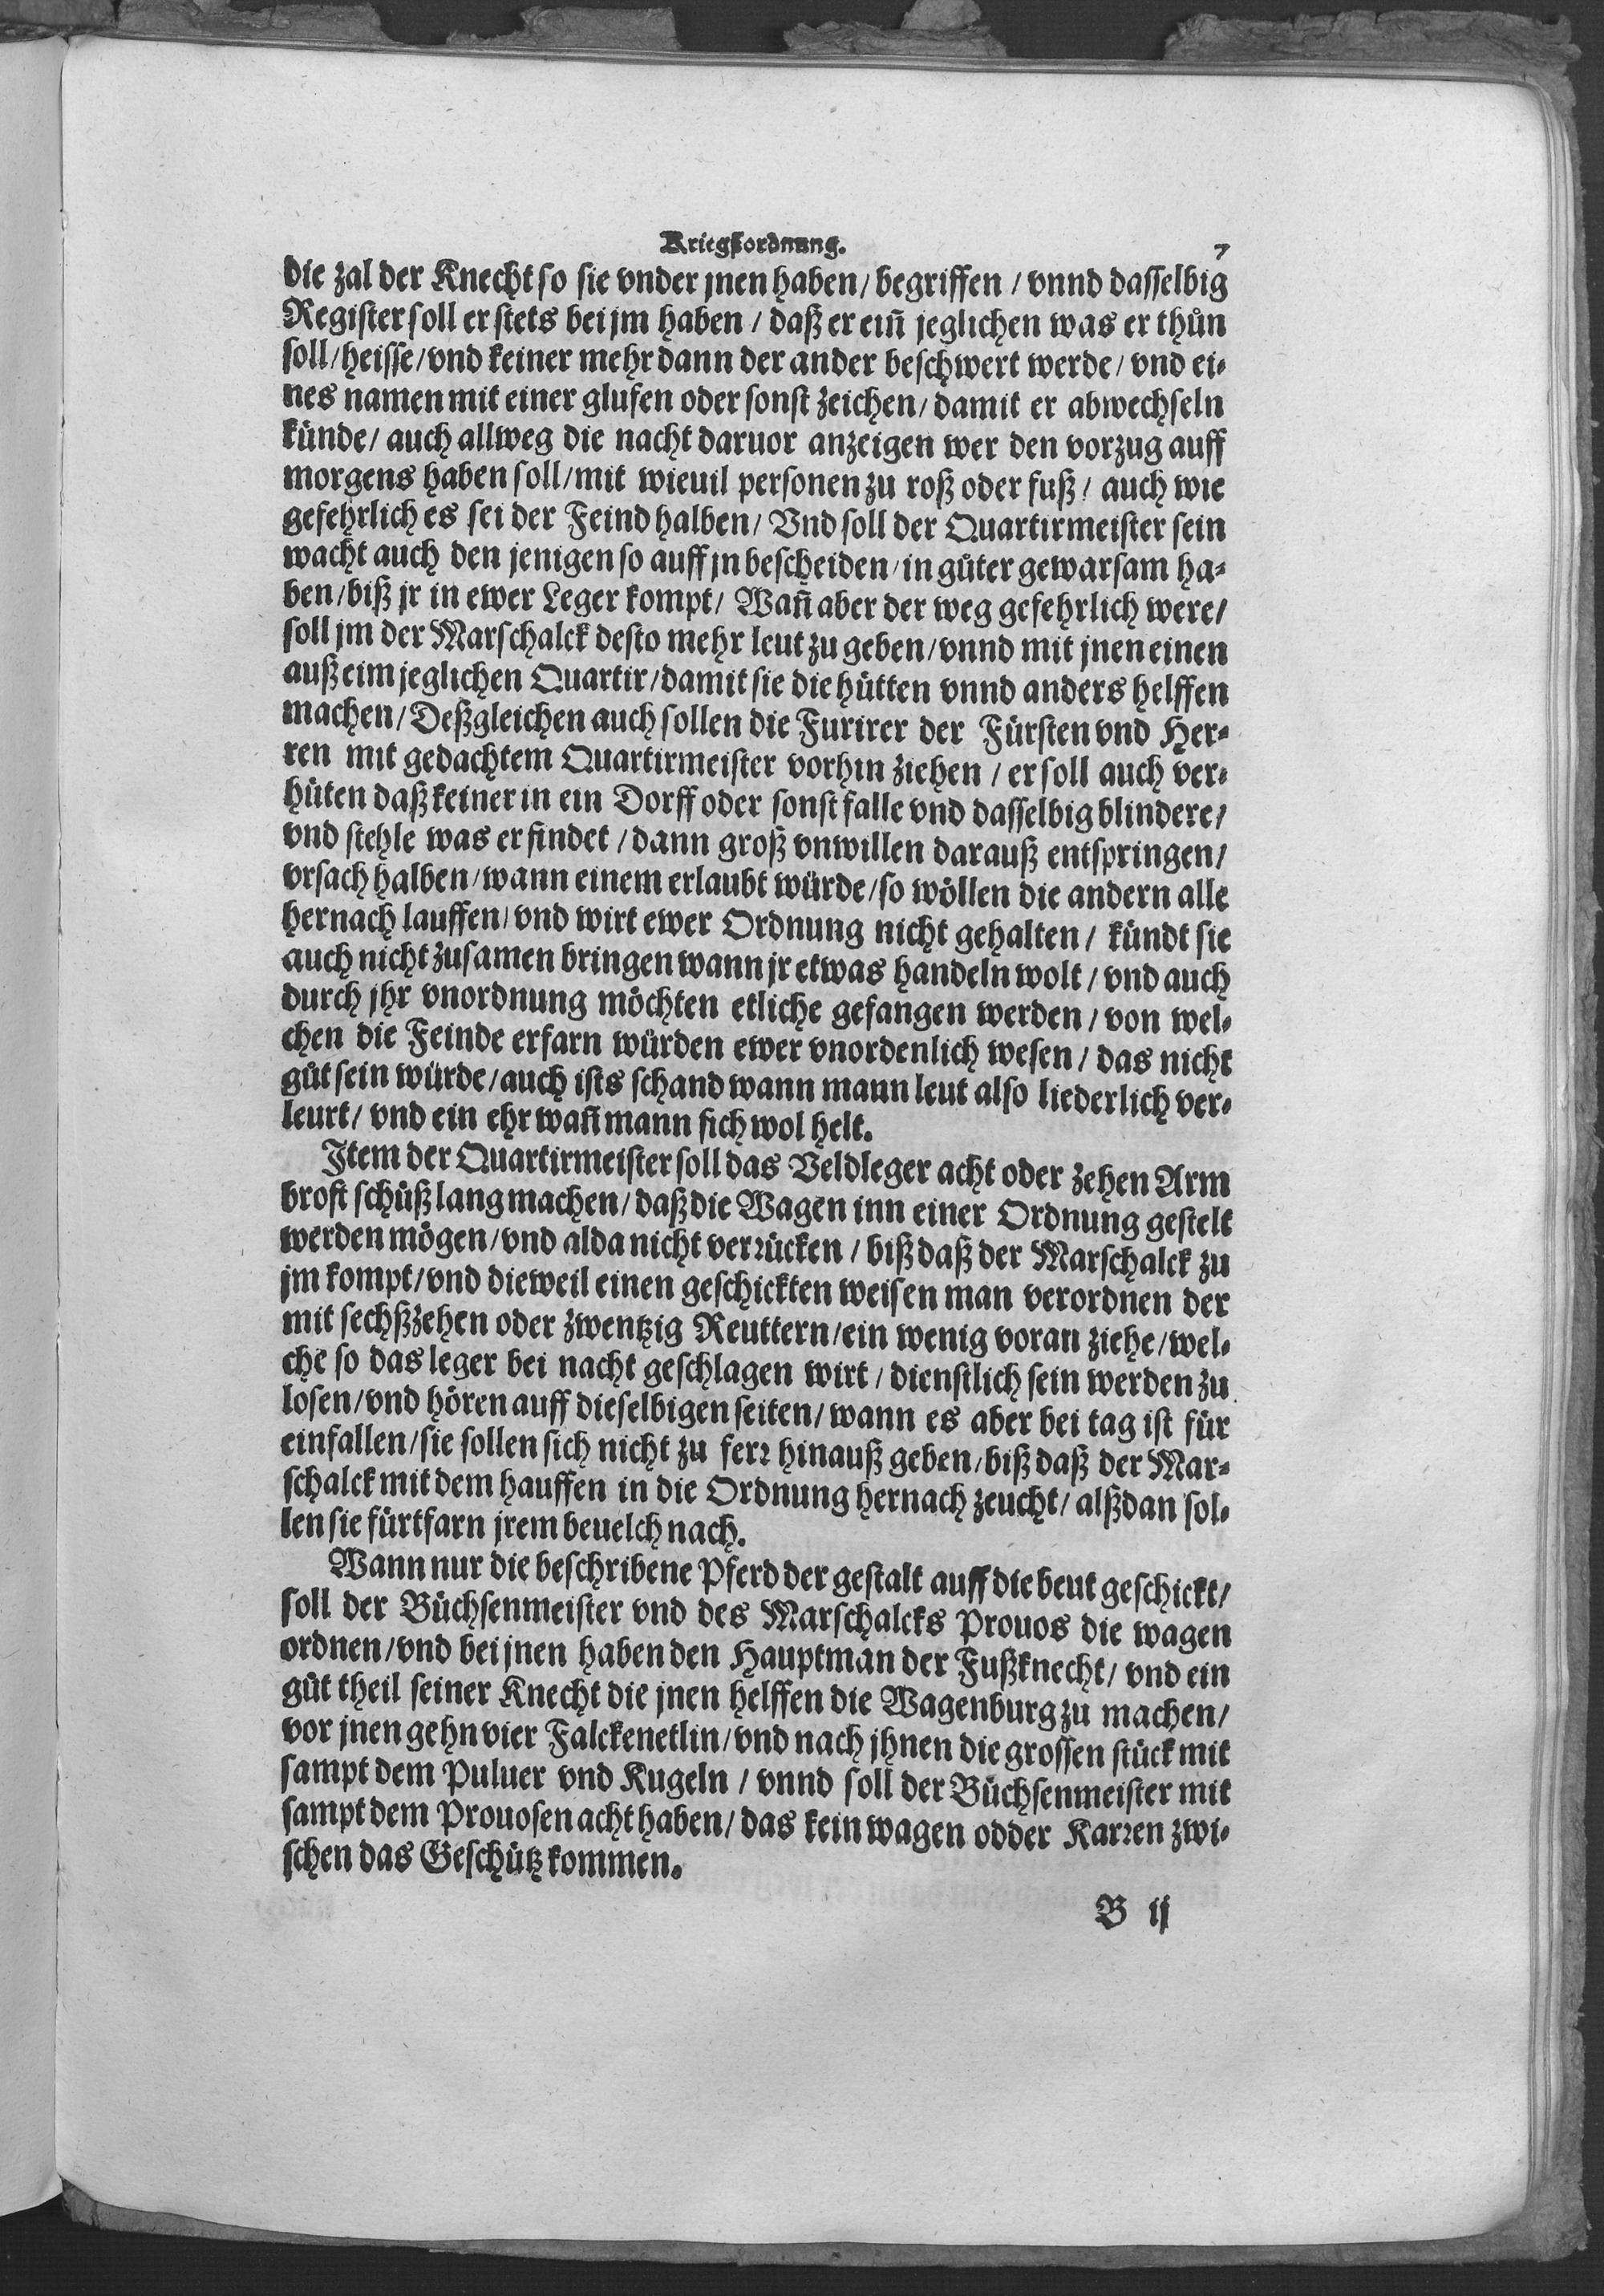 Kriegßordnung. 7
die zal der Knecht so sie vnder jnen haben/ begriffen / vnnd dasselbig
Register soll er stets bei jm haben / daß er eiñ jeglichen was er thůn
soll/ heisse/ vnd keiner mehr dann der ander beschwert werde/ vnd ei-
nes namen mit einer glufen oder sonst zeichen/ damit er abwechseln
künde/ auch allweg die nacht daruor anzeigen wer den vorzug auff
morgens haben soll/ mit wieuil personen zu roß oder fuß/ auch wie
gefehrlich es sei der Feind halben/ Vnd soll der Quartirmeister sein
wacht auch den jenigen so auff jn bescheiden/ in gůter gewarsam ha-
ben/ biß jr in ewer Leger kompt/ Wañ aber der weg gefehrlich were/
soll jm der Marschalck desto mehr leut zu geben/ vnnd mit jnen einen
auß eim jeglichen Quartir/ damit sie die hütten vnnd anders helffen
machen/ Deßgleichen auch sollen die Furirer der Fürsten vnd Her-
ren mit gedachtem Quartirmeister vorhin ziehen / er soll auch ver-
hüten daß keiner in ein Dorff oder sonst falle vnd dasselbig blindere/
vnd stehle was er findet / dann groß vnwillen darauß entspringen/
vrsach halben/ wann einem erlaubt würde/ so wöllen die andern alle
hernach lauffen/ vnd wirt ewer Ordnung nicht gehalten/ kündt sie
auch nicht zusamen bringen wann jr etwas handeln wolt/ vnd auch
durch jhr vnordnung möchten etliche gefangen werden/ von wel-
chen die Feinde erfarn würden ewer vnordenlich wesen/ das nicht
gůt sein würde/ auch ists schand wann mann leut also liederlich ver-
leurt/ vnd ein ehr wañ mann sich wol helt.
Item der Quartirmeister soll das Veldleger acht oder zehen Arm
brost schüß lang machen/ daß die Wagen inn einer Ordnung gestelt
werden mögen/ vnd alda nicht verrücken / biß daß der Marschalck zu
jm kompt/ vnd dieweil einen geschickten weisen man verordnen der
mit sechßzehen oder zwentzig Reuttern/ ein wenig voran ziehe/ wel-
che so das leger bei nacht geschlagen wirt / dienstlich sein werden zu
losen/ vnd hören auff dieselbigen seiten/ wann es aber bei tag ist für
einfallen/ sie sollen sich nicht zu ferr hinauß geben/ biß daß der Mar-
schalck mit dem hauffen in die Ordnung hernach zeucht/ alßdan sol-
len sie fürtfarn jrem beuelch nach.
Wann nur die beschribene Pferd der gestalt auff die beut geschickt/
soll der Büchsenmeister vnd des Marschalcks Prouos die wagen
ordnen/ vnd bei jnen haben den Hauptman der Fußknecht/ vnd ein
gůt theil seiner Knecht die jnen helffen die Wagenburg zu machen/
vor jnen gehn vier Falckenetlin/ vnd nach jhnen die grossen stück mit
sampt dem Puluer vnd Kugeln / vnnd soll der Büchsenmeister mit
sampt dem Prouosen acht haben/ das kein wagen odder Karren zwi-
schen das Geschütz kommen.
B ij